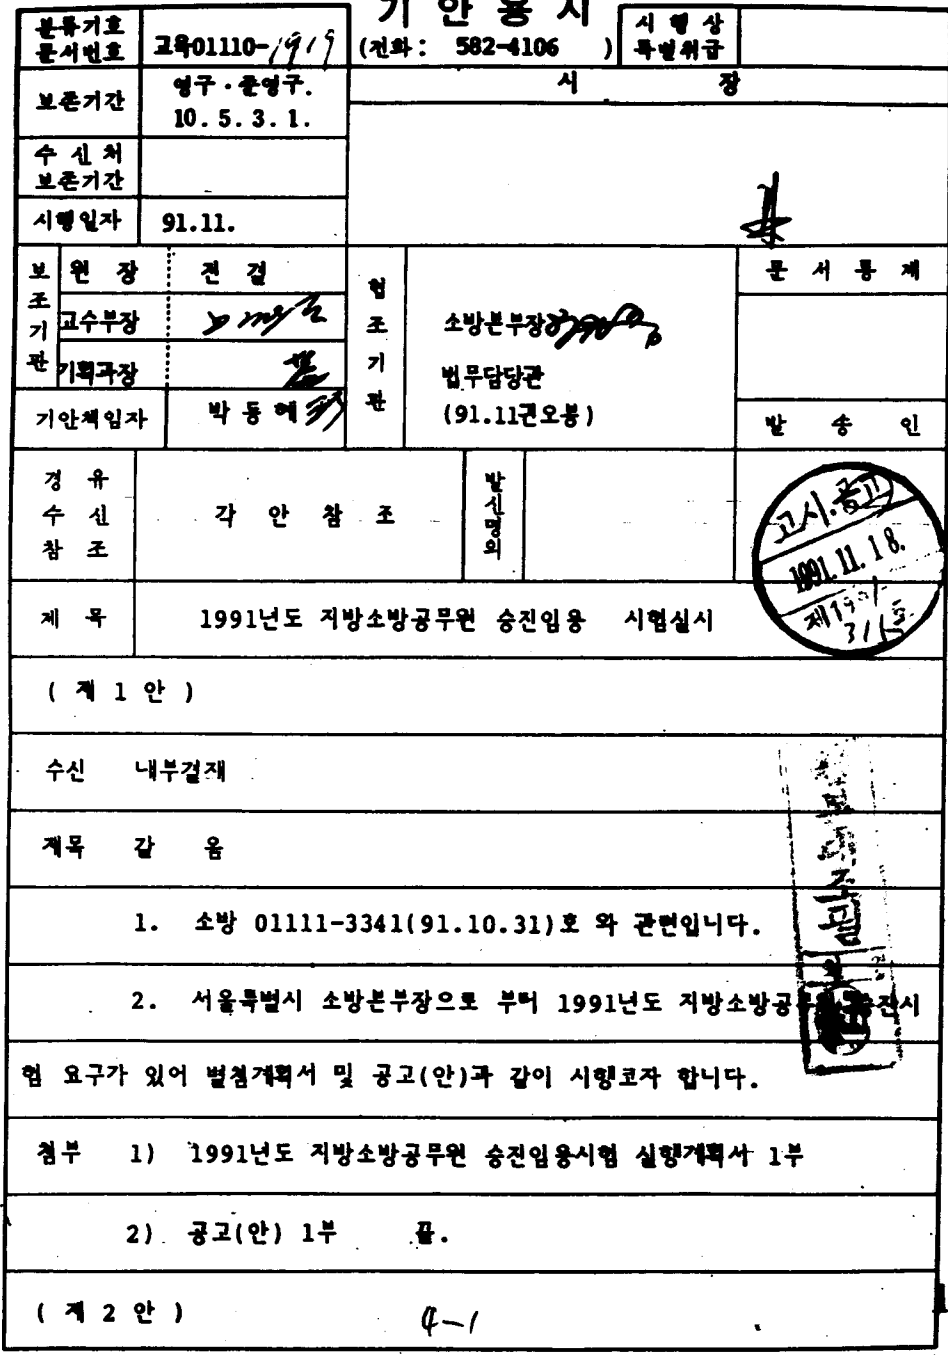 기 안 용 지
분류기호
문서번호
교육01110-1919
(전화 : 582-4106 )
시 행 상
특별취급
보존기간
영구·준영구.
10. 5. 3. 1.
시 장
수 신 처
보존기간
시행일자
91.11.
보조기관
원 장
전 결
교수부장
기획과장
협조기관
소방본부장
법무담당관
(91.11권오봉)
문 서 통 제
기안책임자
박 동 혜
발 송 인
경 유
수 신
참 조
각 안 참 조
발신명의
고시·공고
1991.11.18.
제1991-
315호
제 목
1991년도 지방소방공무원 승진임용 시험실시
( 제 1 안 )
수신 내부결재
제목 같 음
1. 소방 01111-3341(91.10.31)호 와 관련입니다.
2. 서울특별시 소방본부장으로 부터 1991년도 지방소방공무원 승진시
험 요구가 있어 별첨계획서 및 공고(안)과 같이 시행코자 합니다.
첨부 1) 1991년도 지방소방공무원 승진임용시험 실행계획서 1부
2) 공고(안) 1부 끝.
( 제 2 안 )
4-1